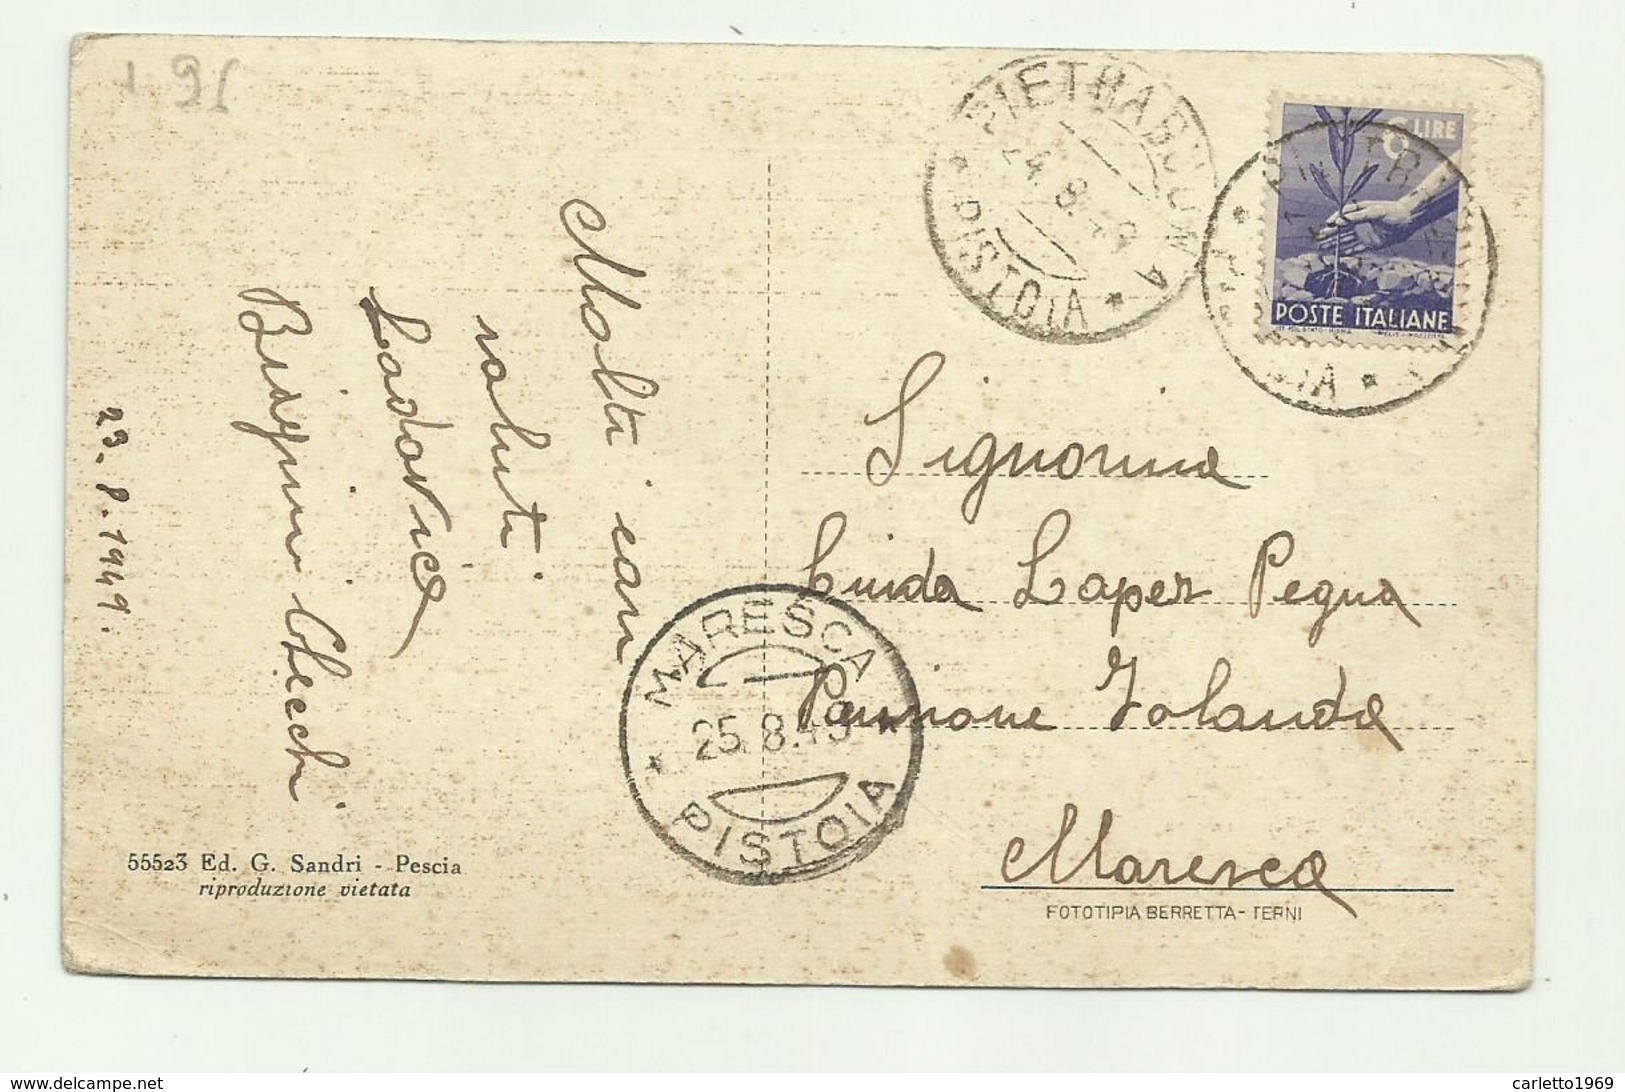 Molti cari
saluti
Ludovica
Bridgnini Checchi
23.8.1949.
55523 Ed. G. Sandri - Pescia
riproduzione vietata
PIETRABUONA
24.8.49
* PISTOIA *
6 LIRE
POSTE ITALIANE
MARESCA
25.8.49
* PISTOIA *
Signorina
Guida Laper Pegna
Pensione Jolanda
Maresca
FOTOTIPIA BERRETTA - TERNI
carletto1969